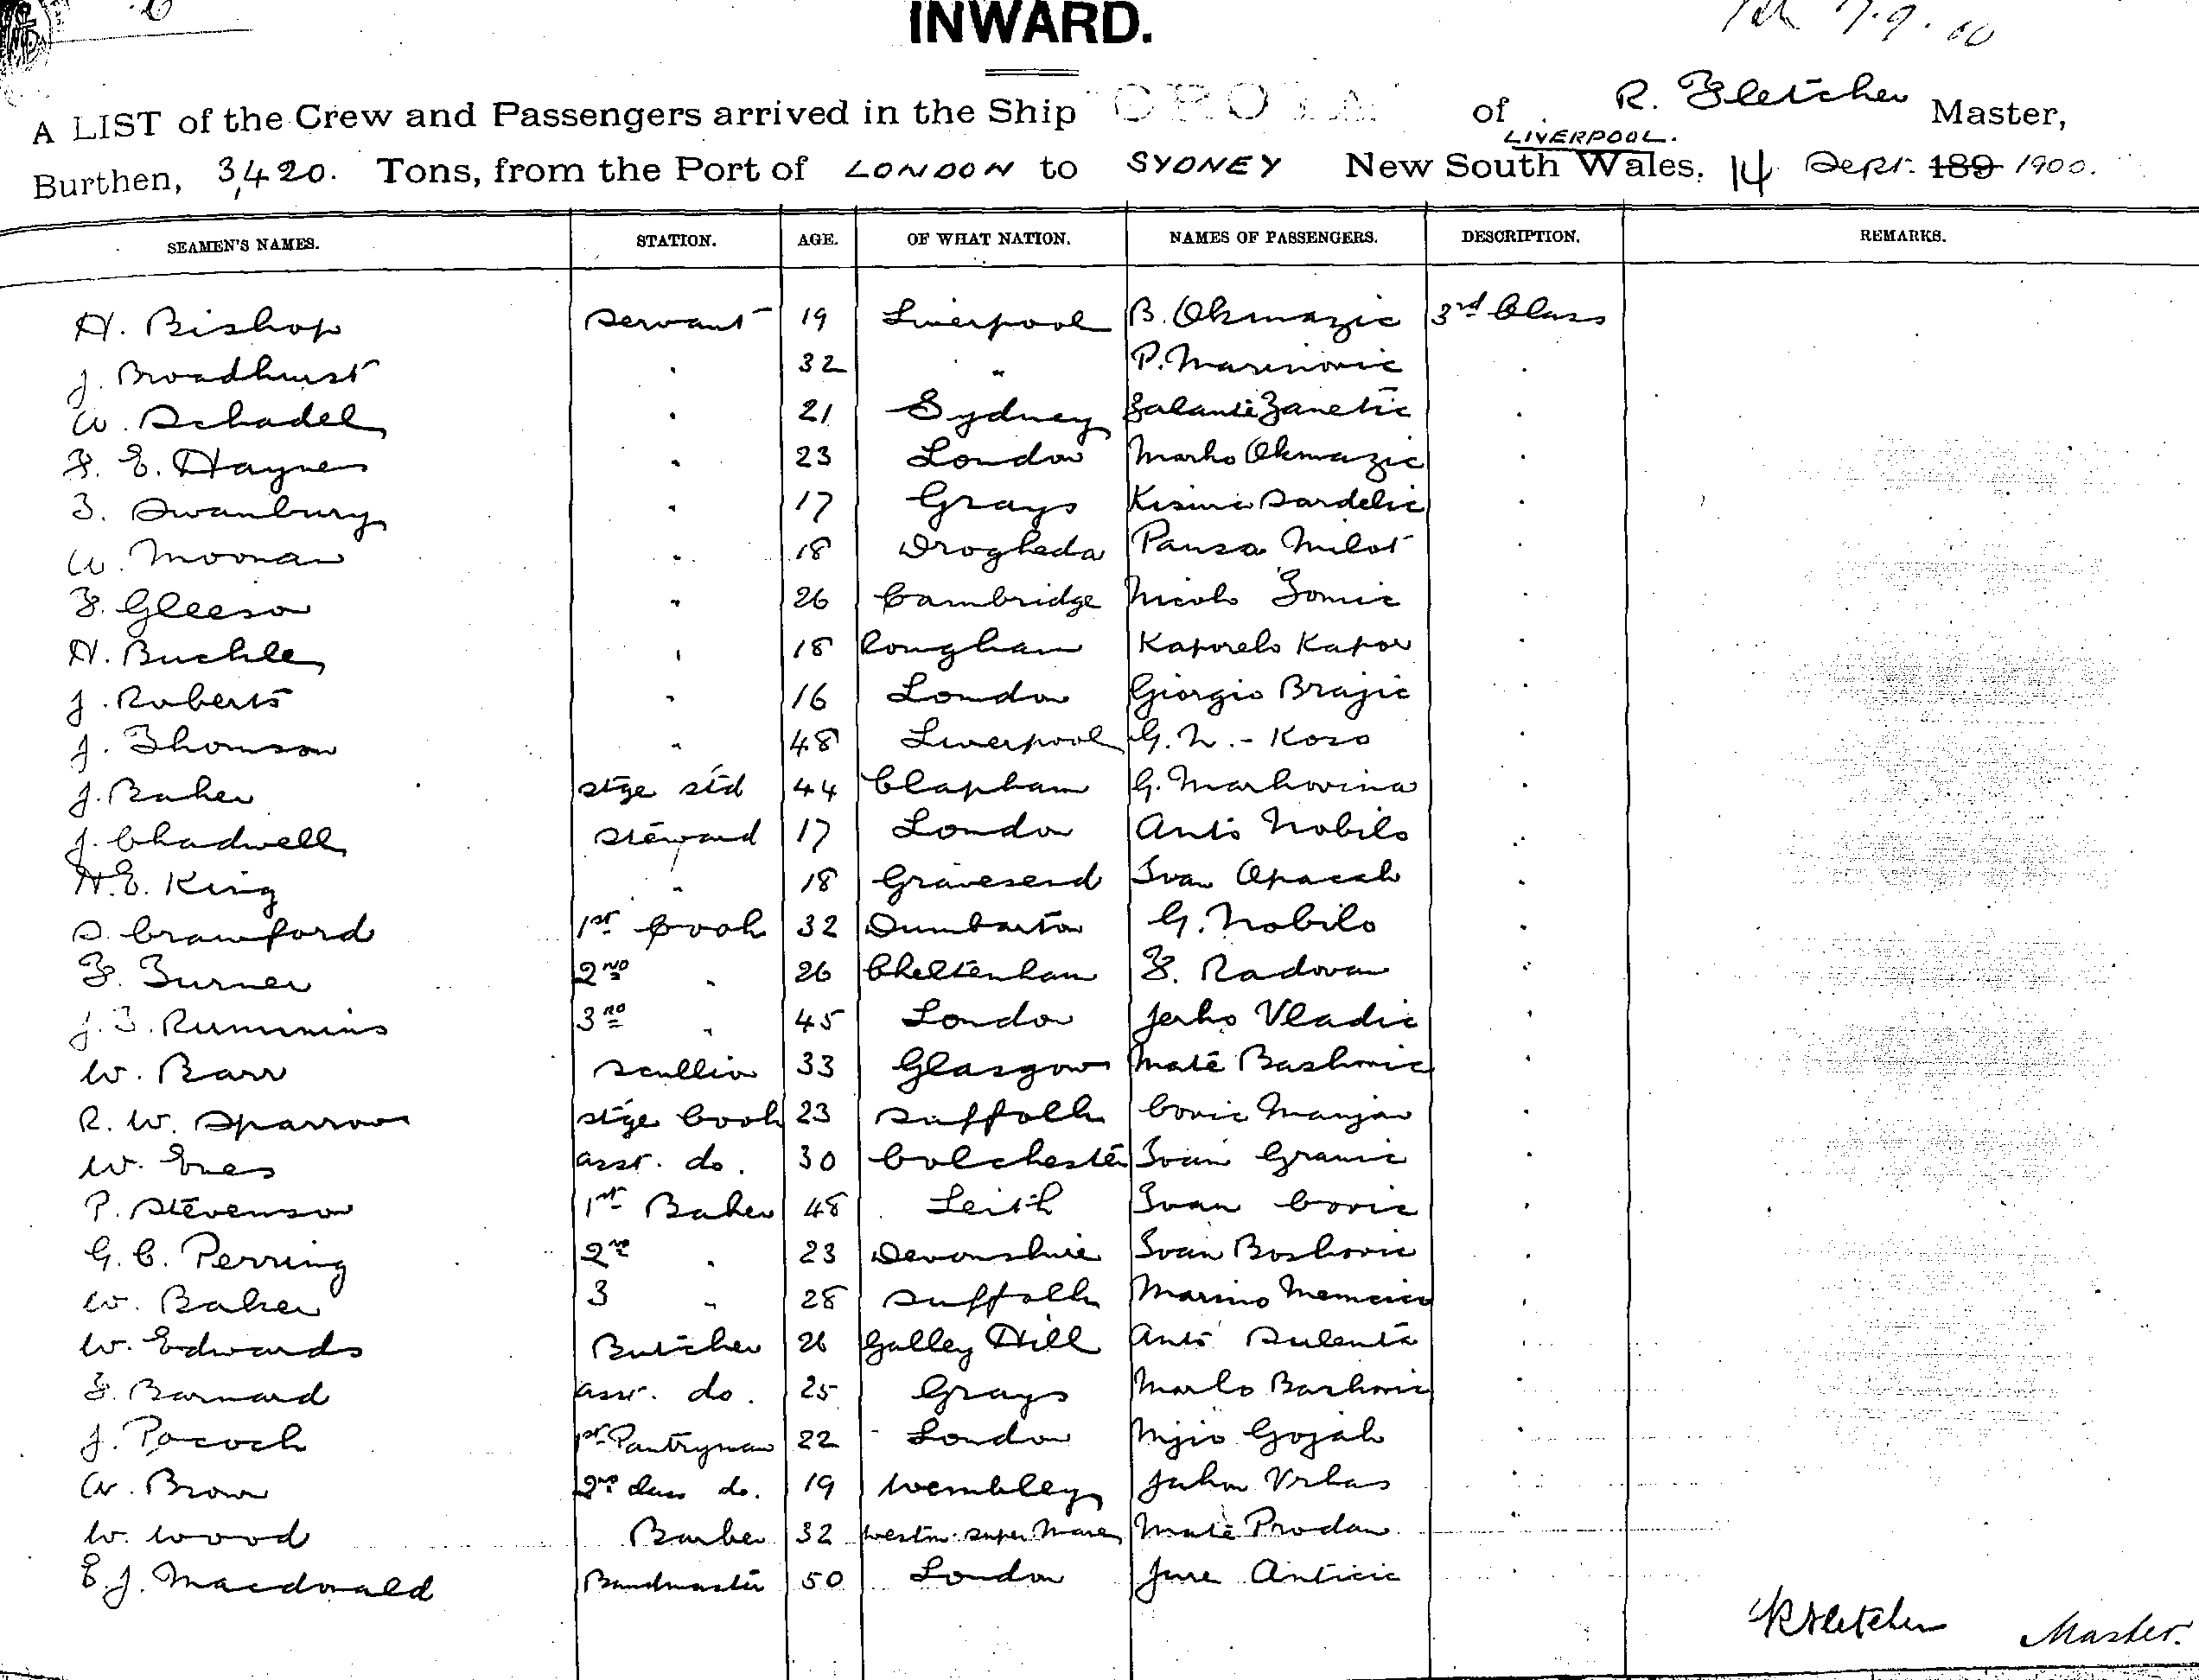 INWARD.
A LIST of the Crew and Passengers arrived in the Ship OROYA of R. Fletcher Master,
LIVERPOOL.
Burthen, 3,420. Tons, from the Port of LONDON to SYDNEY New South Wales, 14 Sept. 189 1900.
SEAMEN'S NAMES. STATION. AGE. OF WHAT NATION. NAMES OF PASSENGERS. DESCRIPTION. REMARKS.
H. Bishop Servant 19 Liverpool B. Okmazic 3rd Class
J. Broadhurst " 32 " P. Marinovic "
W. Schadel " 21 Sydney Zanetic "
F. E. Haynes " 23 London Marko Okmazic "
T. Swanbury " 17 Grays Sardelic "
W. Moonan " 18 Drogheda Pansa Milot "
F. Gleeson " 26 Cambridge Nicolo Tomic "
H. Buckle " 18 Rougham Kaporelo Kapor "
J. Roberts " 16 London Giorgio Brajic "
J. Thomson " 48 Liverpool G. N. - Koso "
J. Baker stge std 44 Clapham G. Markovina "
J. Chadwell Steward 17 London Anto Nobilo "
H. E. King " 18 Gravesend Ivan Opacak "
S. Crawford 1st Cook 32 Dumbarton G. Nobilo "
F. Turner 2nd " 26 Cheltenham F. Radovan "
J. T. Rummins 3rd " 45 London Jerko Vladic "
W. Barr Scullion 33 Glasgow Maté Bashovic "
R. W. Sparrow stge Cook 23 Suffolk Covic Manjan "
W. Eves asst. do. 30 Colchester Ivan Granic "
P. Stevenson 1st Baker 48 Leith Ivan Covic "
G. C. Perring 2nd " 23 Devonshire Ivan Boshovic "
W. Baker 3 " 28 Suffolk Marino "
W. Edwards Butcher 26 Galley Hill Anto Sulenta "
F. Barnard asst. do. 25 Grays Marko Bashovic "
J. Pocock 1st Pantryman 22 London Mijo Gojak "
W. Brown 2nd class do. 19 Wembley Jakov Vrhas "
W. Wood Barber 32 Weston super Mare Maté Prodan "
E. J. Macdonald Bandmaster 50 London Jure Anticic "
R Fletcher Master.